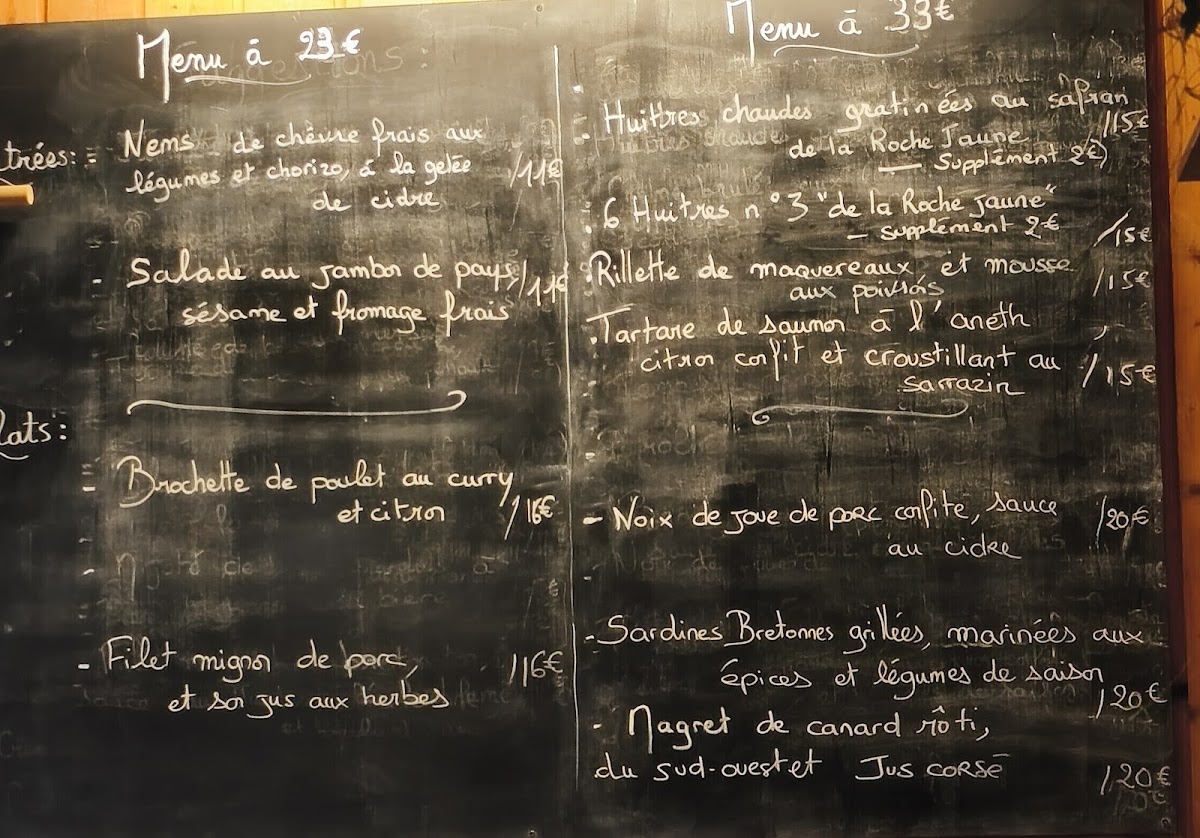 Menu à 23€
trées: - Nems de chèvre frais aux
légumes et chorizo, à la gelée /11€
de cidre
- Salade au jambon de pays /11€
sésame et fromage frais
lats:
- Brochette de poulet au curry
et citron /16€
- Filet mignon de porc, /16€
et son jus aux herbes
Menu à 33€
- Huîtres chaudes gratinées au safran
de la Roche Jaune /15€
— Supplément 2€)
: 6 Huitres n°3 "de la Roche Jaune"
— supplément 2€ /15€
. Rillette de maquereaux, et mousse /15€
aux poivrons
. Tartare de saumon à l'aneth
citron confit et croustillant au /15€
sarrazin
- Noix de joue de porc confite, sauce /20€
au cidre
- Sardines Bretonnes grillées, marinées aux
épices et légumes de saison
/20€
- Magret de canard rôti,
du sud-ouest et Jus corsé /20€